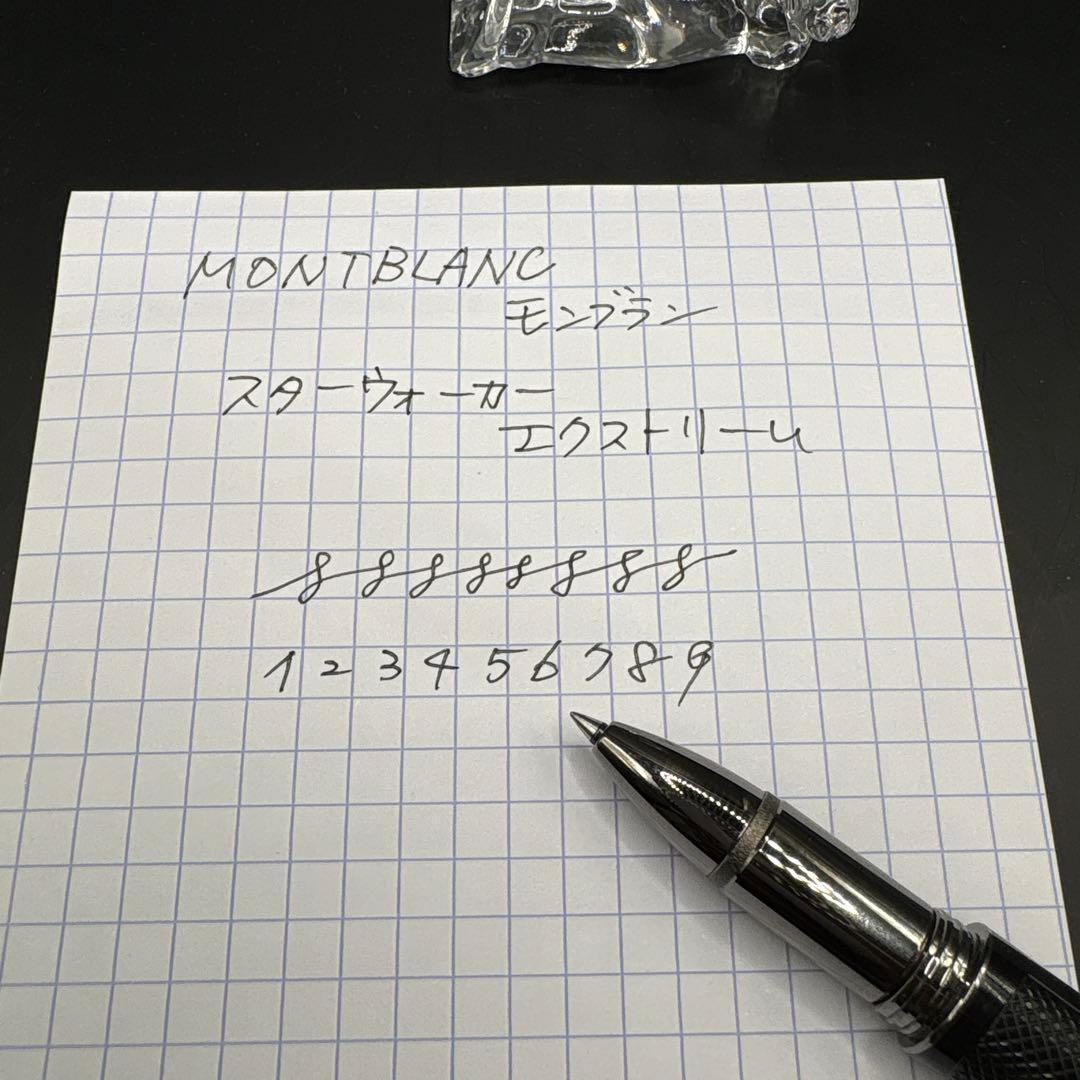 MONTBLANC
モンブラン
スターウォーカー
エクストリーム
8 8 8 8 8 8 8 8
1 2 3 4 5 6 7 8 9